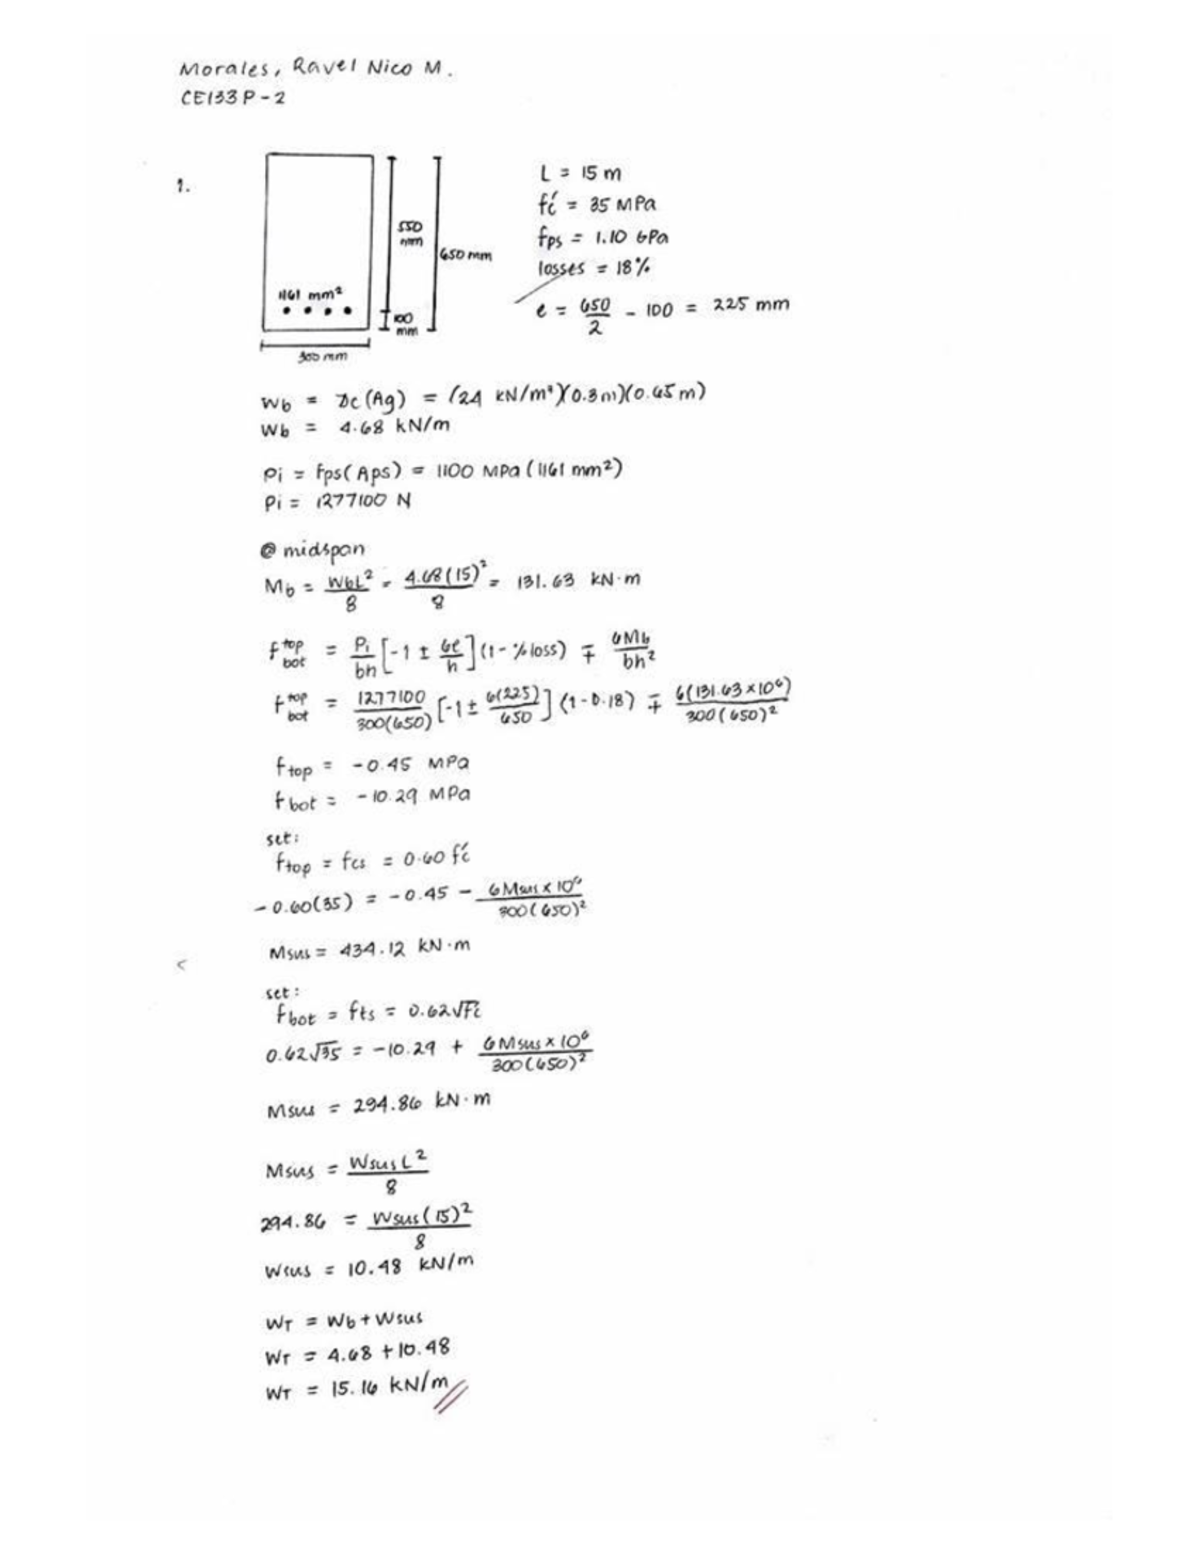 Morales, Ravel Nico M.
CE133P-2
1.
550 mm
650 mm
1161 mm²
100 mm
300 mm
L = 15 m
fć = 35 MPa
fps = 1.10 GPa
losses = 18%
e = 650/2 - 100 = 225 mm
Wb = γc(Ag) = (24 kN/m³)(0.3m)(0.65m)
Wb = 4.68 kN/m
Pi = fps(Aps) = 1100 MPa (1161 mm²)
Pi = 1277100 N
@ midspan
Mb = WbL²/8 = 4.68(15)²/8 = 131.63 kN·m
f top bot = Pi/bh [-1 ± 6e/h] (1-%loss) ∓ 6Mb/bh²
f top bot = 1277100/300(650) [-1 ± 6(225)/650] (1-0.18) ∓ 6(131.63×10⁶)/300(650)²
ftop = -0.45 MPa
fbot = -10.29 MPa
set:
ftop = fcs = 0.60 fć
-0.60(35) = -0.45 - 6Msus×10⁶/300(650)²
Msus = 434.12 kN·m
<
set:
fbot = fts = 0.62√fć
0.62√35 = -10.29 + 6Msus×10⁶/300(650)²
Msus = 294.86 kN·m
Msus = WsusL²/8
294.86 = Wsus(15)²/8
Wsus = 10.48 kN/m
WT = Wb + Wsus
WT = 4.68 + 10.48
WT = 15.16 kN/m